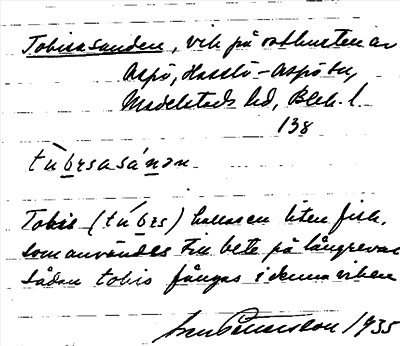 Tobissanden, vik på ostkusten av
Aspö, Hasslö-Aspö sn,
Medelstads hd, Blek. l.
138
tùbɛsasánən
Tobis (túbɛs) kallas en liten fisk,
som användes till bete på långrevar
sådan tobis fångas i denna viken
1935